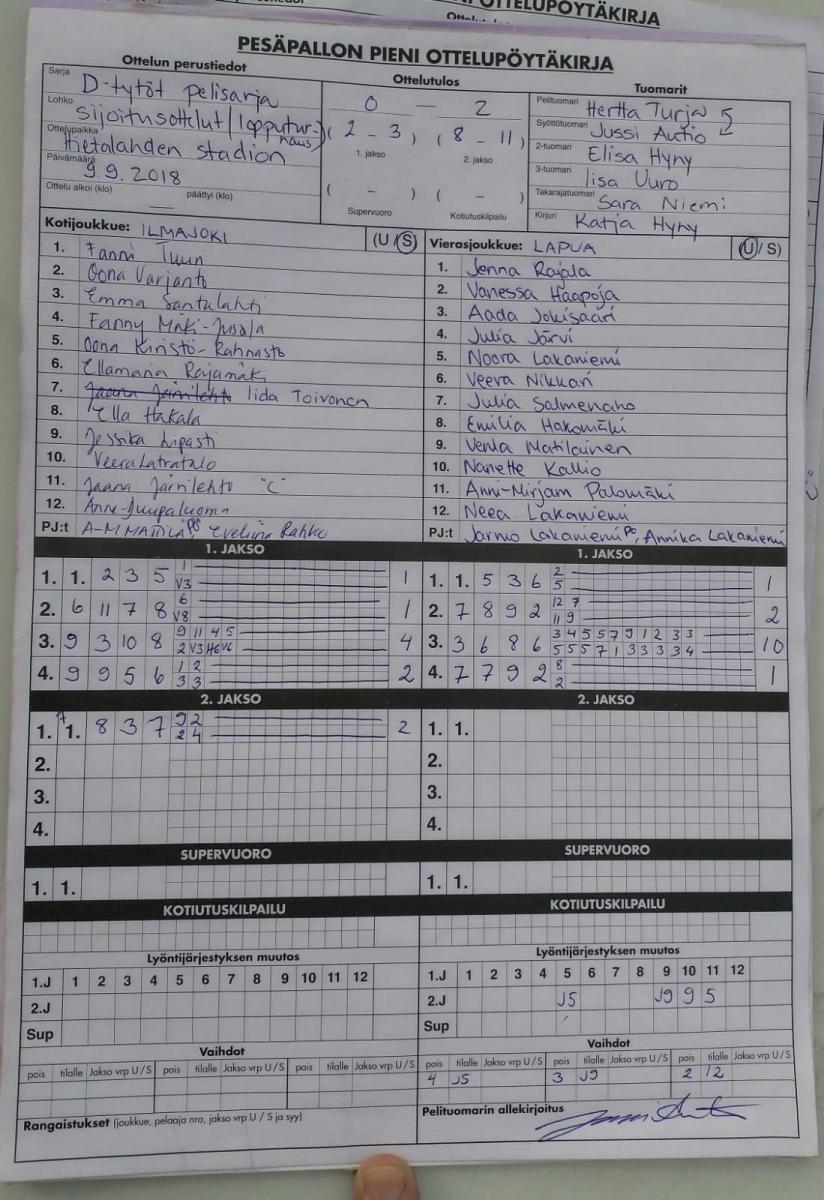 OTTELUPÖYTÄKIRJA
PESÄPALLON PIENI OTTELUPÖYTÄKIRJA
Ottelun perustiedot
Sarja D-tytöt pelisarja
Lohko sijoitusottelut / lopputur-
naus
Ottelupaikka Hietalahden stadion
Päivämäärä 9.9.2018
Ottelu alkoi (klo) päättyi (klo)
Ottelutulos
0 — 2
( 2 - 3 ) ( 8 - 11 )
1. jakso 2. jakso
( - ) ( - )
Supervuoro Kotiutuskilpailu
Tuomarit
Pelituomari Hertta Turja
Syöttötuomari Jussi Autio
2-tuomari Elisa Hyny
3-tuomari Iisa Vuro
Takarajatuomari Sara Niemi
Kirjuri Katja Hyny
Kotijoukkue: ILMAJOKI (U / S)
1. Fanni Tuuri
2. Oona Varjanto
3. Emma Santulahti
4. Fanny Mäki-Jussila
5. Oona Kiristö-Rahnasto
6. Ellamaria Rajamäki
7. Jaana Järvilehto Iida Toivonen
8. Ella Hakala
9. Jessika Lipasti
10. Veera Latvatalo
11. Jaana Järvilehto "C"
12. Anni Juupaluoma
PJ:t A-M MATTILA PP, Eveliina Rahko
Vierasjoukkue: LAPUA (U / S)
1. Jenna Rajala
2. Vanessa Haapoja
3. Aada Jokisaari
4. Julia Järvi
5. Noora Lakaniemi
6. Veeva Nikkari
7. Julia Salmenaho
8. Emilia Hakomäki
9. Venla Matilainen
10. Nanette Kallio
11. Anni-Mirjam Palomäki
12. Neea Lakaniemi
PJ:t Jarmo Lakaniemi PP, Annika Lakaniemi
1. JAKSO
1. 1. 2 3 5 1 1
V3
2. 6 11 7 8 6 1
V8
3. 9 3 10 8 9 11 4 5 4
2 V3 H6 V6
4. 9 9 5 6 1 2 2
3 3
1. JAKSO
1. 1. 5 3 6 2 1
5
2. 7 8 9 2 12 7 2
11 9
3. 3 6 8 6 3 4 5 5 7 9 1 2 3 3 10
5 5 5 7 1 3 3 3 3 4
4. 7 7 9 2 8 1
2
2. JAKSO
1. 1. 7 8 3 7 9 2 2
2 4
2.
3.
4.
2. JAKSO
1. 1.
2.
3.
4.
SUPERVUORO
1. 1.
SUPERVUORO
1. 1.
KOTIUTUSKILPAILU
KOTIUTUSKILPAILU
Lyöntijärjestyksen muutos
1.J 1 2 3 4 5 6 7 8 9 10 11 12
2.J
Sup
Lyöntijärjestyksen muutos
1.J 1 2 3 4 5 6 7 8 9 10 11 12
2.J J5 J9 9 5
Sup
Vaihdot
pois tilalle Jakso vrp U / S pois tilalle Jakso vrp U / S pois tilalle Jakso vrp U / S
Vaihdot
pois tilalle Jakso vrp U / S pois tilalle Jakso vrp U / S pois tilalle Jakso vrp U / S
4 J5 3 J9 2 12
Rangaistukset (joukkue, pelaaja nro, jakso vrp U / S ja syy)
Pelituomarin allekirjoitus